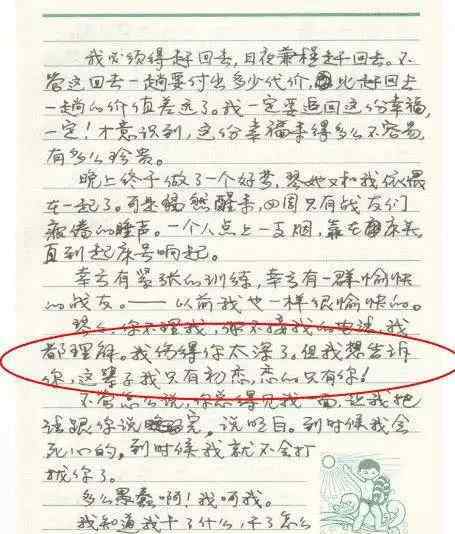 我必须得赶回去，日夜兼程赶回去。不
管这回去一趟要付出多少代价，比起回去
一趟的价值差远了。我一定要追回这份幸福，
一定！才意识到，这份幸福来得多么不容易，
有多么珍贵。
晚上终于做了一个好梦，琴她又和我依偎
在一起了。可是惕然醒来，四周只有战友们
疲倦的睡声。一个人点上一支烟，靠在床头
直到起床号响起。
幸亏有紧张的训练，幸亏有一群愉快
的战友。——以前我也一样很愉快的。
你不理我，你不接我的电话，我
都理解。我伤得你太深了。但我想告诉
你，这辈子我只有初恋，恋的只有你！
不管怎么说，你总得见我一面，让我把
话跟你说完，说明白。到时候我会
死心的，到时候我就不会打
扰你了。
多么愚蠢啊！我呵我。
我知道我干了什么，干了怎么